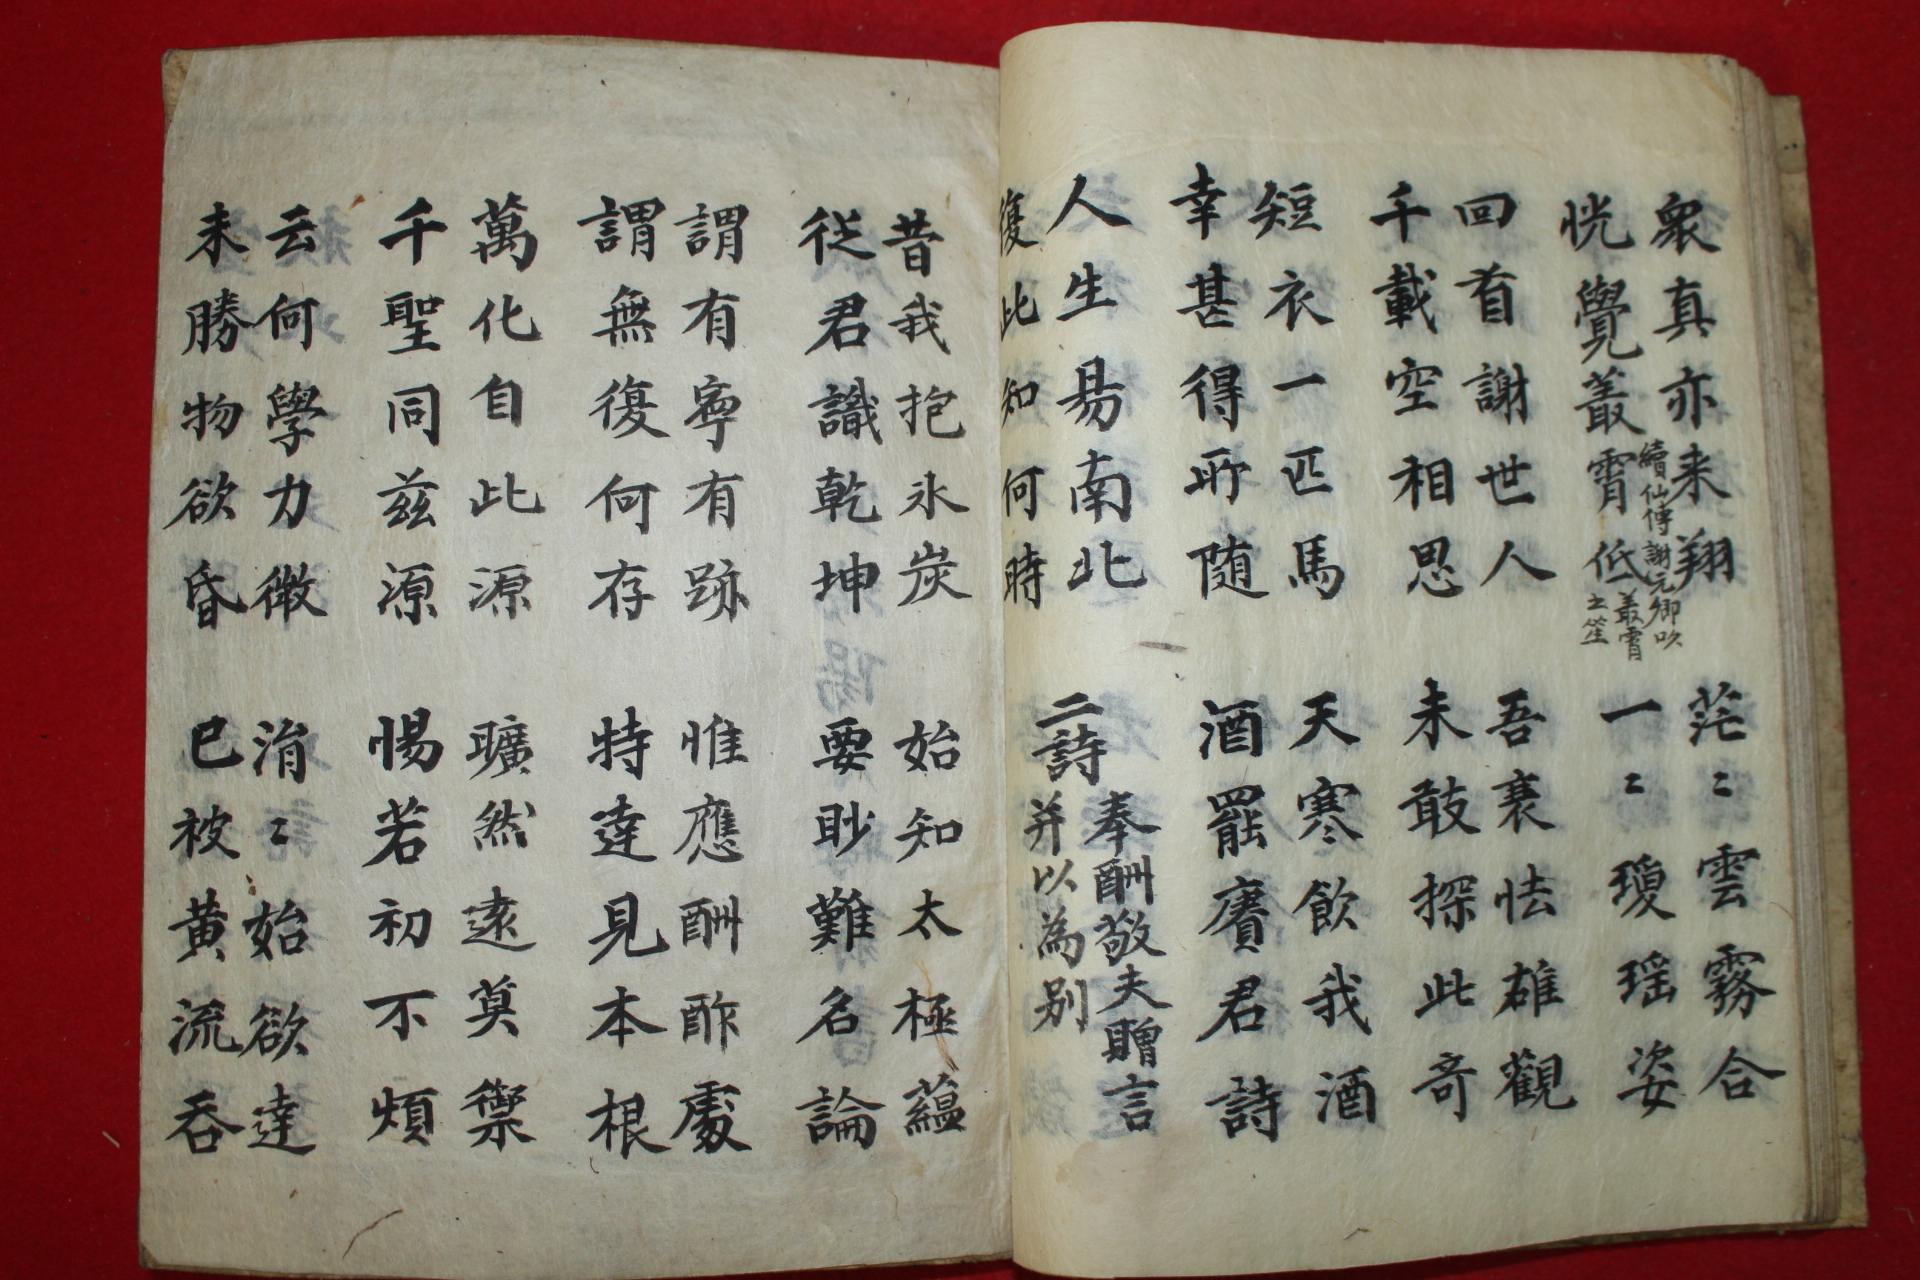 衆真亦来翔
恍覺叢霄低
續仙傳謝元卿吹
叢霄
之笙
茫〻雲霧合
一〻瓊瑶姿
回首謝世人
千載空相思
吾衰怯雄觀
未敢探此奇
短衣一匹馬
幸甚得所随
天寒飲我酒
酒罷賡君詩
人生易南北
復此知何時
二詩
奉酬敬夫贈言
并以為别
昔我抱氷炭
従君識乾坤
始知太極蘊
要眇難名論
謂有寧有跡
謂無復何存
惟應酬酢處
特達見本根
萬化自此源
千聖同茲源
曠然遠莫禦
惕若初不煩
云何學力微
未勝物欲昏
涓〻始欲達
已被黄流呑